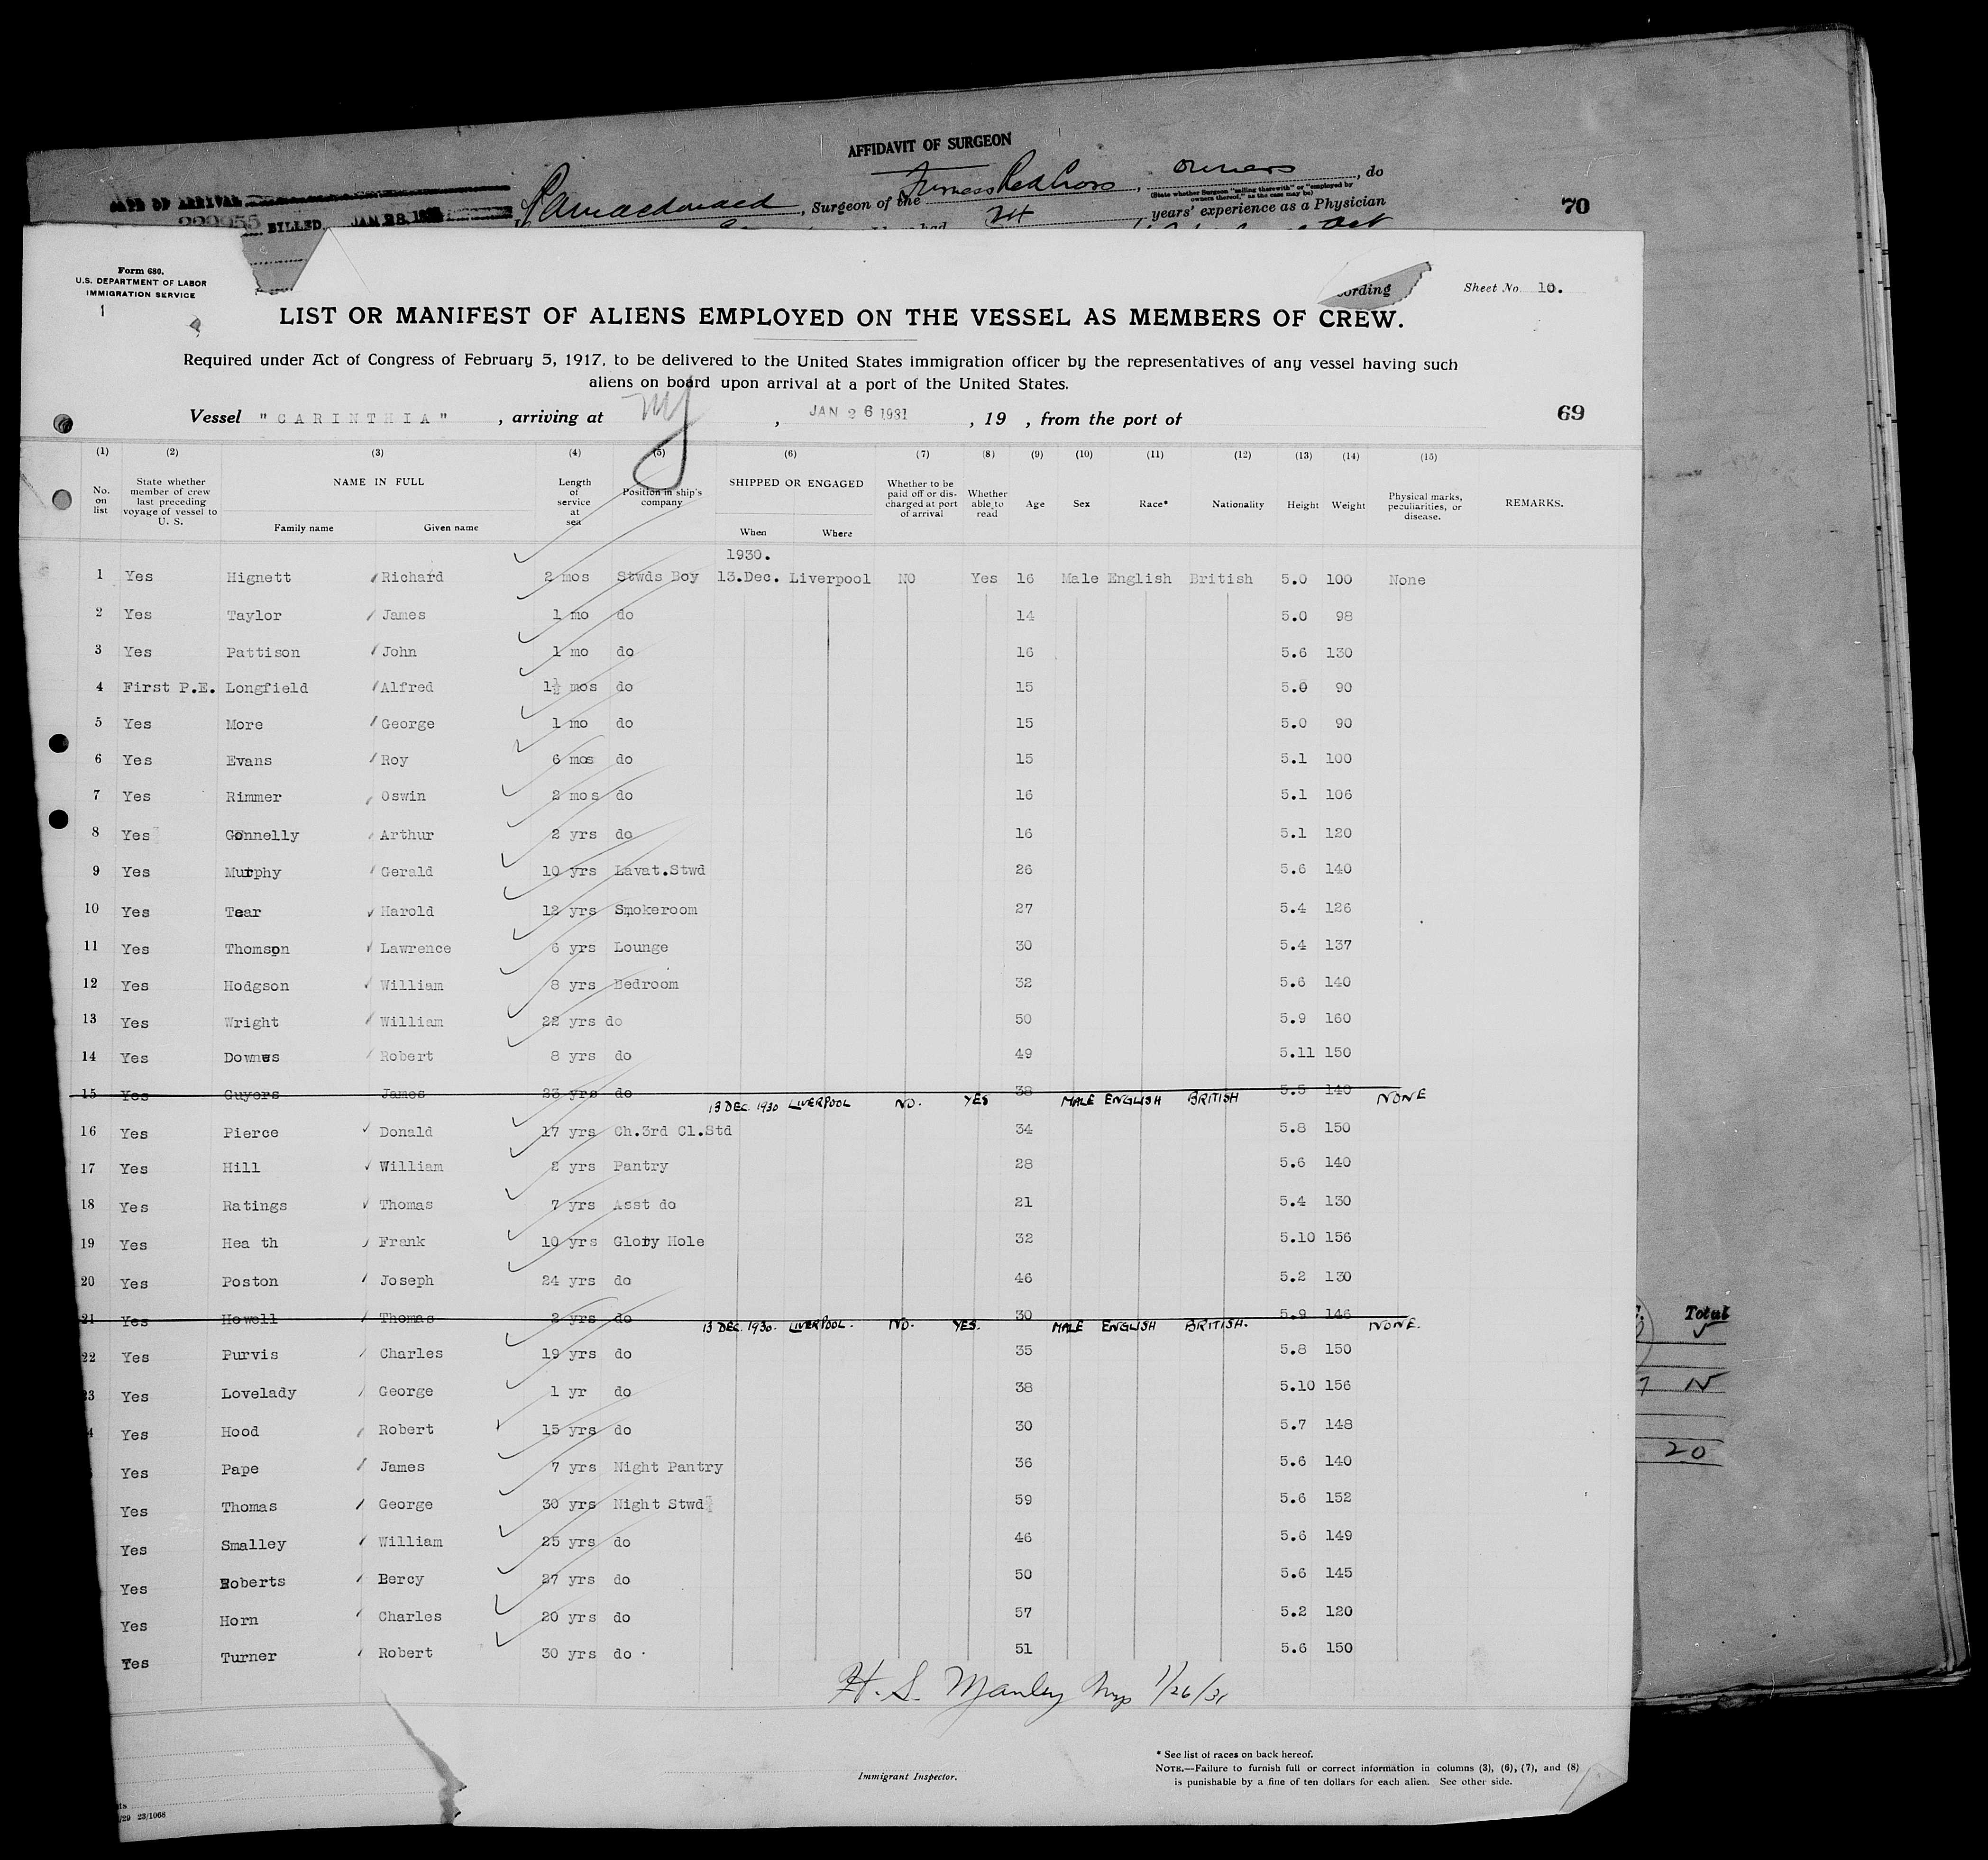 AFFIDAVIT OF SURGEON
DATE OF ARRIVAL
, Surgeon of the Furness Red Cross, owners, do
(State whether Surgeon "sailing therewith" or "employed by owners thereof," as the case may be)
BILLED JAN 28
24 years' experience as a Physician
70
Form 680.
U.S. DEPARTMENT OF LABOR
IMMIGRATION SERVICE
1
ording
Sheet No. 10.
LIST OR MANIFEST OF ALIENS EMPLOYED ON THE VESSEL AS MEMBERS OF CREW.
Required under Act of Congress of February 5, 1917, to be delivered to the United States immigration officer by the representatives of any vessel having such
aliens on board upon arrival at a port of the United States.
Vessel "CARINTHIA", arriving at NY, JAN 26 1931, 19 , from the port of
69
(1) (2) (3) (4) (5) (6) (7) (8) (9) (10) (11) (12) (13) (14) (15)
No. on list
State whether member of crew last preceding voyage of vessel to U. S.
NAME IN FULL
Family name Given name
Length of service at sea
Position in ship's company
SHIPPED OR ENGAGED
When Where
Whether to be paid off or discharged at port of arrival
Whether able to read
Age Sex Race* Nationality Height Weight
Physical marks, peculiarities, or disease.
REMARKS.
1930.
1 Yes Hignett Richard 2 mos Stwds Boy 13.Dec. Liverpool NO Yes 16 Male English British 5.0 100 None
2 Yes Taylor James 1 mo do 14 5.0 98
3 Yes Pattison John 1 mo do 16 5.6 130
4 First P.E. Longfield Alfred 1½ mos do 15 5.0 90
5 Yes More George 1 mo do 15 5.0 90
6 Yes Evans Roy 6 mos do 15 5.1 100
7 Yes Rimmer Oswin 2 mos do 16 5.1 106
8 Yes Gonnelly Arthur 2 yrs do 16 5.1 120
9 Yes Murphy Gerald 10 yrs Lavat.Stwd 26 5.6 140
10 Yes Tear Harold 12 yrs Smokeroom 27 5.4 126
11 Yes Thomson Lawrence 6 yrs Lounge 30 5.4 137
12 Yes Hodgson William 8 yrs Bedroom 32 5.6 140
13 Yes Wright William 22 yrs do 50 5.9 160
14 Yes Downes Robert 8 yrs do 49 5.11 150
15 Yes Guyers James 23 yrs do 38 5.5 140
13 DEC. 1930 LIVERPOOL NO. YES MALE ENGLISH BRITISH NONE
16 Yes Pierce Donald 17 yrs Ch.3rd Cl.Std 34 5.8 150
17 Yes Hill William 2 yrs Pantry 28 5.6 140
18 Yes Ratings Thomas 7 yrs Asst do 21 5.4 130
19 Yes Hea th Frank 10 yrs Glory Hole 32 5.10 156
20 Yes Poston Joseph 24 yrs do 46 5.2 130
21 Yes Howell Thomas 2 yrs do 30 5.9 146
13 DEC. 1930. LIVERPOOL. NO. YES. MALE ENGLISH BRITISH. NONE.
22 Yes Purvis Charles 19 yrs do 35 5.8 150
23 Yes Lovelady George 1 yr do 38 5.10 156
4 Yes Hood Robert 15 yrs do 30 5.7 148
Yes Pape James 7 yrs Night Pantry 36 5.6 140
Yes Thomas George 30 yrs Night Stwd 59 5.6 152
Yes Smalley William 25 yrs do 46 5.6 149
Yes Roberts Bercy 27 yrs do 50 5.6 145
Yes Horn Charles 20 yrs do 57 5.2 120
Yes Turner Robert 30 yrs do 51 5.6 150
H. S. Manley Insp 1/26/31
Immigrant Inspector.
* See list of races on back hereof.
NOTE.—Failure to furnish full or correct information in columns (3), (6), (7), and (8)
is punishable by a fine of ten dollars for each alien. See other side.
23/1068
Total
20